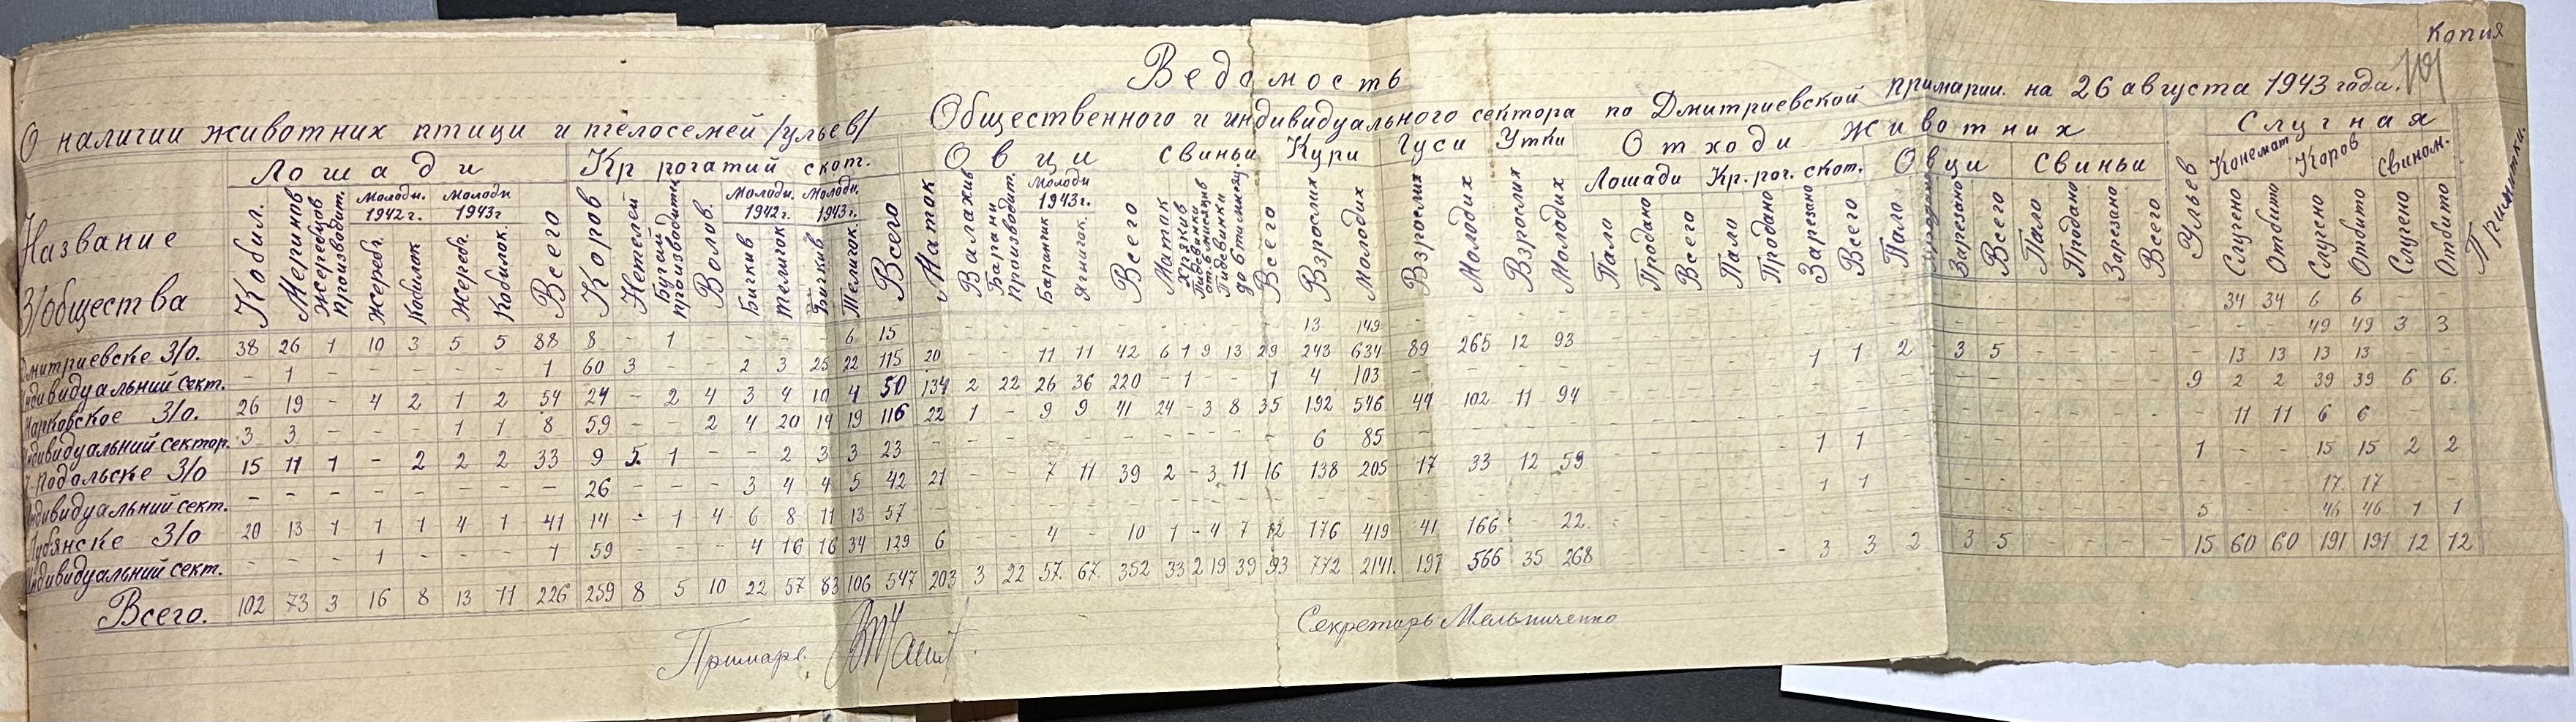 Копия
101
Ведомость
О наличии животних птици и пчелосемей /ульев/ Общественного и индивидуального сектора по Дмитриевской примарии на 26 августа 1943 года.
Название З/общества
Лошади Кр рогатий скот. Овци Свиньи Кури Гуси Утки Отходи Животних Ульев Случная Примитки.
Молодн. 1942 г. Молодн 1943 г Молодн. 1942 г. Молодн. 1943 г. Молодн 1943 г. Лошади Кр. рог. скот. Овци Свиньи Конемат Коров Свином.
Кобил. Меринов Жеребцов производит. Жереб. Кобилок Жереб. Кобилок. Всего Коров Нетелей Бугаи производит. Волов. Бичкив Теличок Бичкив Теличок. Всего
Маток Валахив Барани производит. Баранчик Яничок. Всего Маток Хрякив Всего Взрослих Молодих Взрослих Молодих Взрослих Молодих
Пало Продано Всего Пало Продано Зарезано Всего Пало Продано Зарезано Всего Пало Продано Зарезано Всего
Случено Отбито Случено Отбито Случено Отбито
Дмитриевске З/о. 38 26 1 10 3 5 5 88 8 - 1 - - - - 6 15 - - - - - - - - - - - 13 149 - - - - 34 34 6 6 - -
Индивидуальний сект. - 1 - - - - - 1 60 3 - - 2 3 25 22 115 20 - - 11 11 42 6 1 9 13 29 243 634 89 265 12 93 49 49 3 3
Марковское З/о. 26 19 - 4 2 1 2 54 24 - 2 4 3 4 10 4 50 134 2 22 26 36 220 - 1 - - 1 4 103 - - - - 1 1 2 - 3 5 - 13 13 13 13 - -
Индивидуальний сектор. 3 3 - - - 1 1 8 59 - - 2 4 20 14 19 116 22 1 - 9 9 41 24 - 3 8 35 192 546 44 102 11 94 9 2 2 39 39 6 6.
Подольске З/о 15 11 1 - 2 2 2 33 9 5. 1 - - 2 3 3 23 - - - - - - - - - - - 6 85 - - - - 1 1 - 11 11 6 6 - -
Индивидуальний сект. - - - - - - - - 26 - - - 3 4 4 5 42 21 - - 7 11 39 2 - 3 11 16 138 205 17 33 12 59 1 - - 15 15 2 2
Лубянске З/о 20 13 1 1 1 4 1 41 14 - 1 4 6 8 11 13 57 - - - - - - - - - - - - - - - - - 1 1 - - - 17 17 - -
Индивидуальний сект. - - - 1 - - - 1 59 - - - 4 16 16 34 129 6 - - 4 - 10 1 - 4 7 12 176 419 41 166 22 5 - - 46 46 1 1
Всего. 102 73 3 16 8 13 11 226 259 8 5 10 22 57 83 106 547 203 3 22 57. 67. 352 33 2 19 39 93 772 2141. 191 566 35 268 3 3 2 3 5 - - - - 15 60 60 191 191 12 12
Примарь
Секретарь Мельниченко